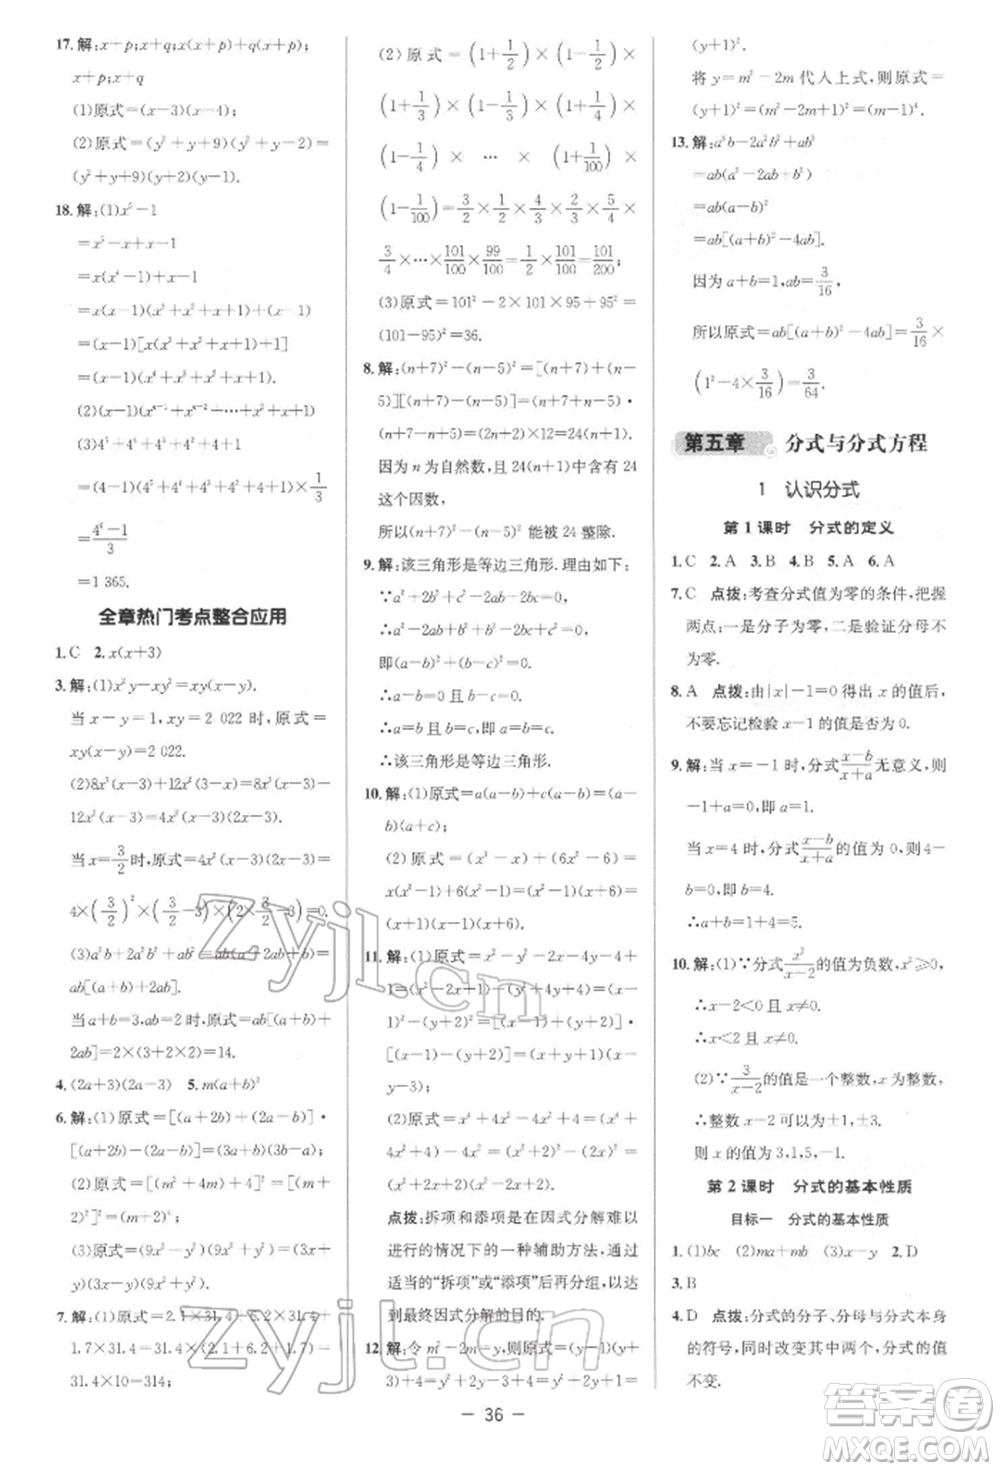 17.解:x+p;x+q;x(x+p);
x+p;x+q
(1)原式=(x-3)(x-4);
(2)原式=(y²+y+9)(y²+y)=
(y²+y+9)(y+1).
18.解:(1)x⁵-1
=x⁵-x+x-1
=x(x⁴-1)+(x-1)
=(x-1)[x(x³+x²+x+1)+1]
=(x-1)(x⁴+x³+x²+x+1)
(4)⁵+4⁴+4³+4²+4+1
=(4-1)(4⁵+4⁴+4³+4²+4+1)×1/3
=(4⁶-1)/3
=1 365.
全章热门考点整合应用
1.C 2.x(x+3)
3.解:(1)x²y-xy²=xy(x-y).
当x-y=1,xy=2 022时,原式=
xy(x-y)=2 022.
12x²(x-2)=4x²(2x-3).
当x=3/2时,原式=4x²(2x-3)=
4×(3/2)²×(2×3/2-3)=0.
当a+b=3,ab=2时,原式=ab[(a+b)²+
2ab]=2×(3²+2×2)=14.
4.(2a+3)(2a-3) 5.m(a+b)²
6.解:(1)原式=[(a+2b)+(2a-b)]·
[(a+2b)-(2a-b)]=(3a+b)(3b-a).
(2)原式=[(m²+4)+4m][(m²+4)-4m]=(m+2)²(m-2)².
y)(3x-y)(9x²+y²).
7.解:(1)原式=2.1×31.4+6.2×31.4+
1.7×31.4=31.4×(2.1+6.2+1.7)=
31.4×10=314;
(2)原式=(1+1/2)×(1-1/2)×
(1+1/3)×(1-1/3)×(1+1/4)×
(1-1/4)×…×(1+1/100)×
(1-1/100)=3/2×1/2×4/3×2/3×5/4×
3/4×…×101/100×99/100=1/2×101/100=101/200;
(3)原式=101²-2×101×95+95²=
(101-95)²=36.
8.解:(n+7)²-(n-5)²=[(n+7)+(n-
5)][(n+7)-(n-5)]=(n+7+n-5)·
(n+7-n+5)=(2n+2)×12=24(n+1).
因为n为自然数,所以24(n+1)中含有24
这个因数,
所以(n+7)²-(n-5)²能被24整除.
9.解:该三角形是等边三角形.理由如下:
∵a²+2b²+c²-2ab-2bc=0,
∴a²-2ab+b²+b²-2bc+c²=0,
即(a-b)²+(b-c)²=0,
∴a-b=0且b-c=0,
∴a=b且b=c,∴a=b=c,
∴该三角形是等边三角形.
10.解:(1)原式=a(a-b)+c(a-b)=(a-
b)(a+c).
(2)原式=(x³-x)+(6x²-6)=
x(x²-1)+6(x²-1)=(x²-1)(x+6)=
(x+1)(x-1)(x+6).
11.解:(1)原式=x²-y²-2x-4y-4+
1=(x²-2x+1)-(y²+4y+4)=
(x-1)²-(y+2)²=[(x-1)+(y+2)]·
[(x-1)-(y+2)]=(x+y+1)(x-
y-3).
(2)原式=x⁴+x²y²+y⁴=
x⁴+2x²y²+y⁴-x²y²=(x²+y²)²-
x²y²=(x²+y²+xy)(x²+y²-xy).
点拨:拆项和添项是在因式分解难以
进行的情况下的一种辅助方法,通过
适当的“拆项”或“添项”后再分组,以达
到最终因式分解的目的.
12.解:令m²-2m=y,则原式=y(y+
2)+1=y²+2y+1=
(y+1)².
将y=m²-2m代入上式,则原式=
(y+1)²=(m²-2m+1)²=(m-1)⁴.
13.解:a³b-2a²b²+ab³
=ab(a²-2ab+b²)
=ab(a-b)²
=ab[(a+b)²-4ab].
因为a+b=1,ab=3/16,
所以原式=ab[(a+b)²-4ab]=3/16×
(1²-4×3/16)=3/64.
第五章 分式与分式方程
1 认识分式
第1课时 分式的定义
1.C 2.A 3.B 4.B 5.A 6.A
7.C 点拨:考查分式值为零的条件,把握
两点:一是分子为零,二是验证分母不
为零.
8.A 点拨:由|x|-1=0得出x的值后,
不要忘记检验x-1的值是否为0.
9.解:当x=-1时,分式(x-b)/(x+a)无意义,则
-1+a=0,即a=1.
当x=4时,分式(x-b)/(x+a)的值为0,则4-
b=0,即b=4.
∴a+b=1+4=5.
10.解:(1)∵分式x²/(x-2)的值为负数,x²≥0,
∴x-2<0且x≠0,
∴x<2且x≠0.
(2)∵3/(x-2)的值是一个整数,x为整数,
∴整数x-2的值为±1,±3,
则x的值为3,1,5,-1.
第2课时 分式的基本性质
目标一 分式的基本性质
1.(1)bc (2)ma+mb (3)x 2.D
3.B
4.D 点拨:分式的分子、分母与分式本身
的符号,同时改变其中两个,分式的值
不变.
- 36 -
Zyjl.cn
zyjl.cn
答案圈
MXQE.COM